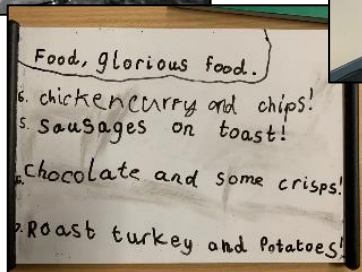 Food, glorious food.
6. chicken curry and chips!
5. sausages on toast!
chocolate and some crisps!
Roast turkey and Potatoes!